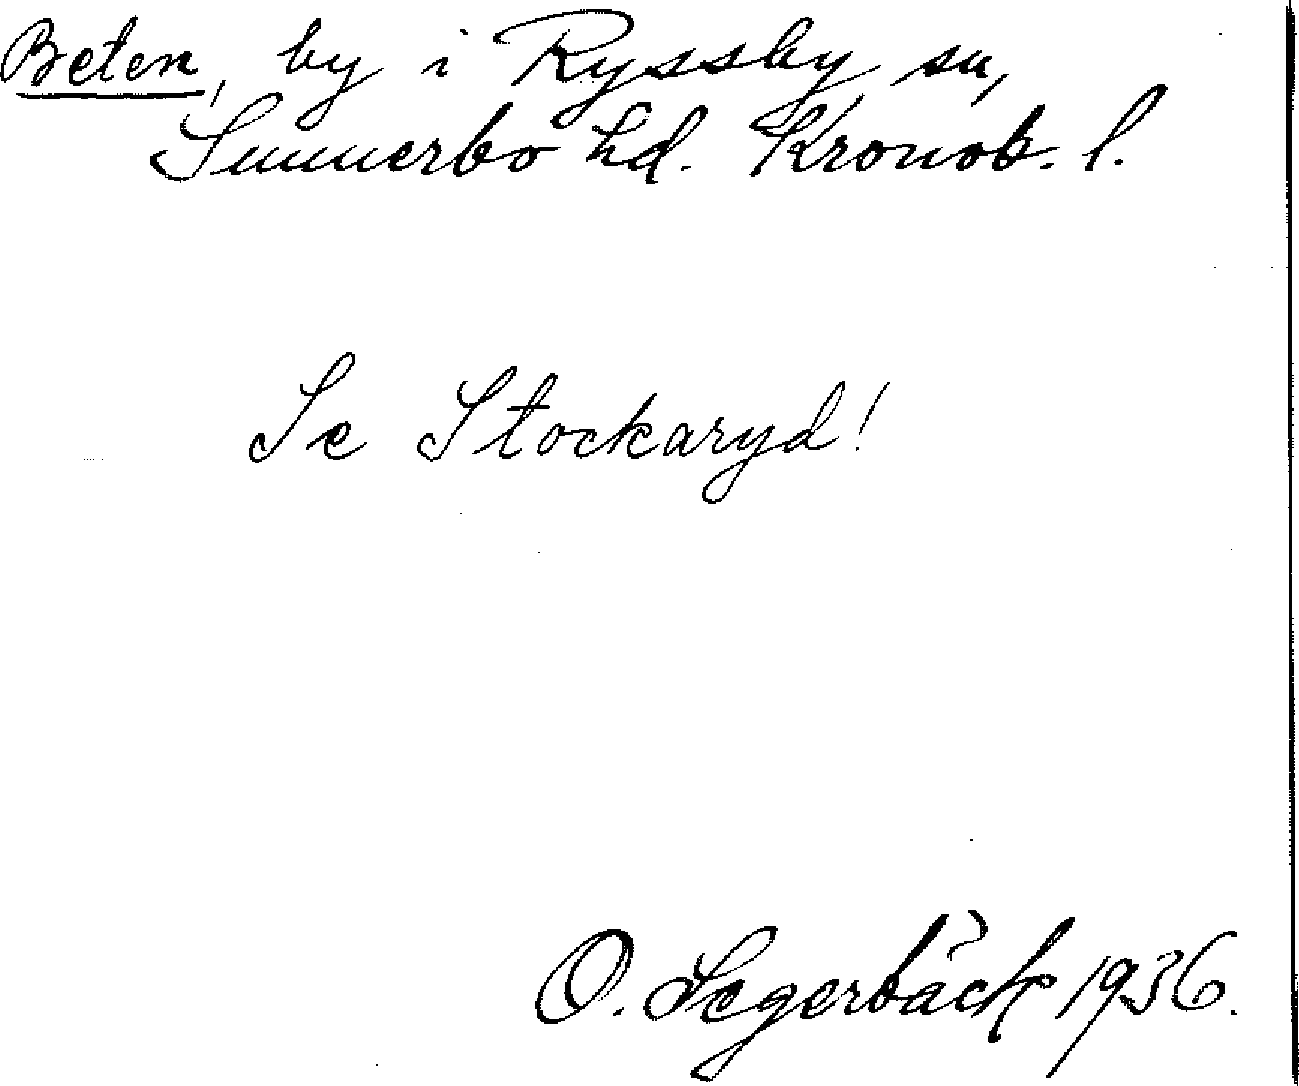 Beten, by i Ryssby sn,
Sunnerbo hd. Kronob. l.
Se Stockaryd!
O. Segerbäck 1936.